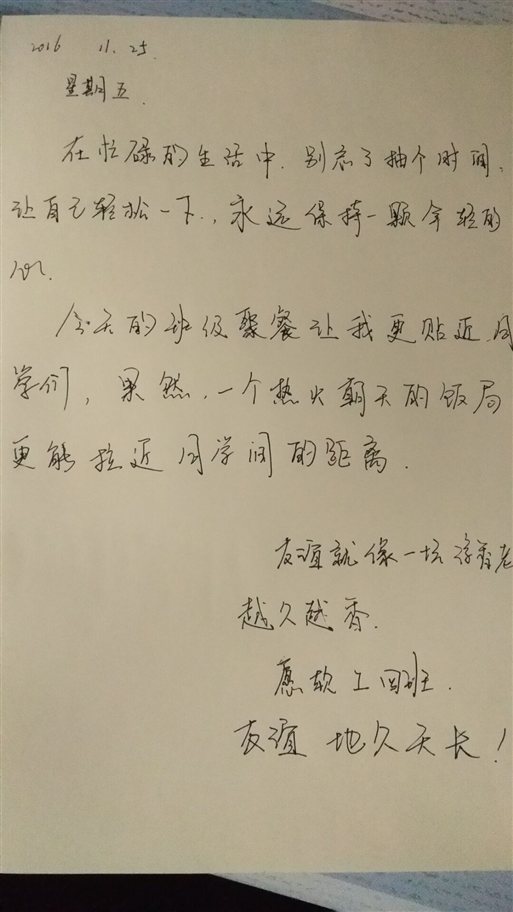 2016 11. 25.
星期五.
在忙碌的生活中. 别忘了抽个时间,
让自己轻松一下., 永远保持一颗年轻的
心.
今天的班级聚餐让我更贴近同
学们, 果然, 一个热火朝天的饭局
更能拉近同学间的距离.
友谊就像一坛 老
越久越香.
愿软工四班.
友谊 地久天长!